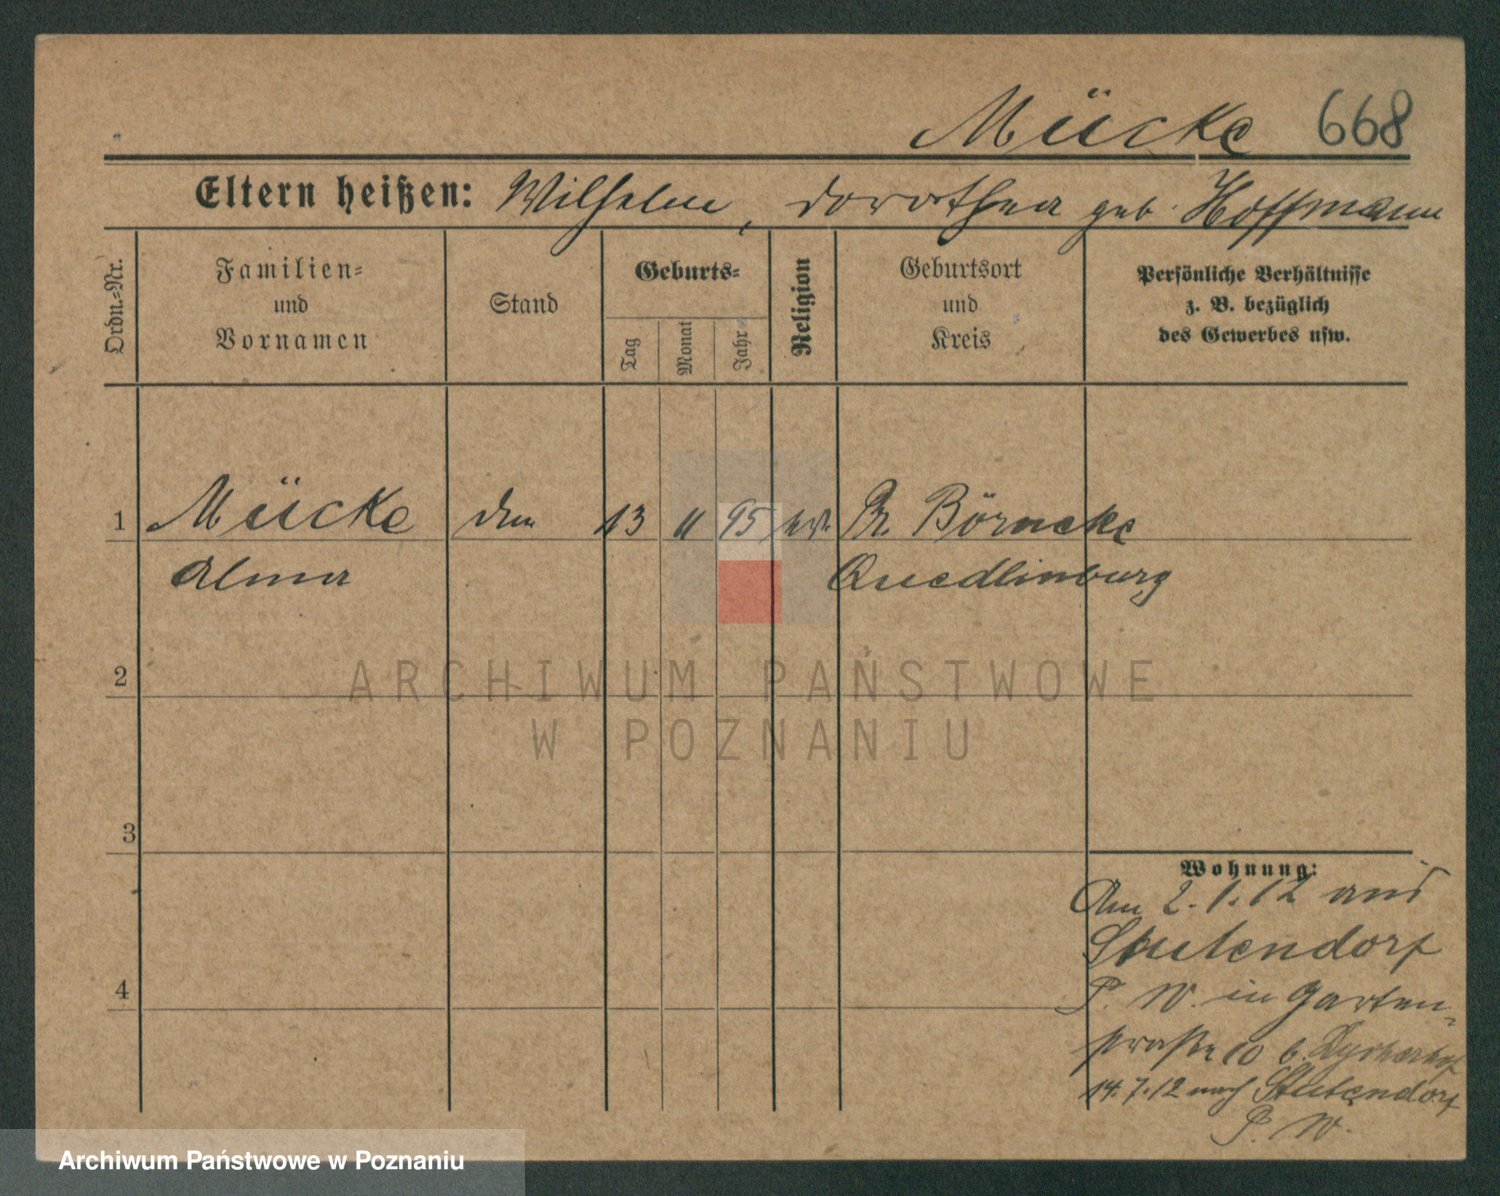 Mücke 668
Eltern heißen: Wilhelm, Dorothea geb. Hoffmann
Ordn.=Nr.
Familien=
und
Vornamen
Stand
Geburts=
Tag
Monat
Jahr
Religion
Geburtsort
und
Kreis
Persönliche Verhältnisse
z. B. bezüglich
des Gewerbes usw.
1 Mücke 13 11 95 ev. Börnecke
Alma Quedlinburg
2
3
4
Wohnung:
Am 2.1.12 aus
Stutendorf
P. W. in Garten-
straße 10 b.
14.7.12 nach Stutendorf
P. W.
ARCHIWUM PAŃSTWOWE
W POZNANIU
Archiwum Państwowe w Poznaniu